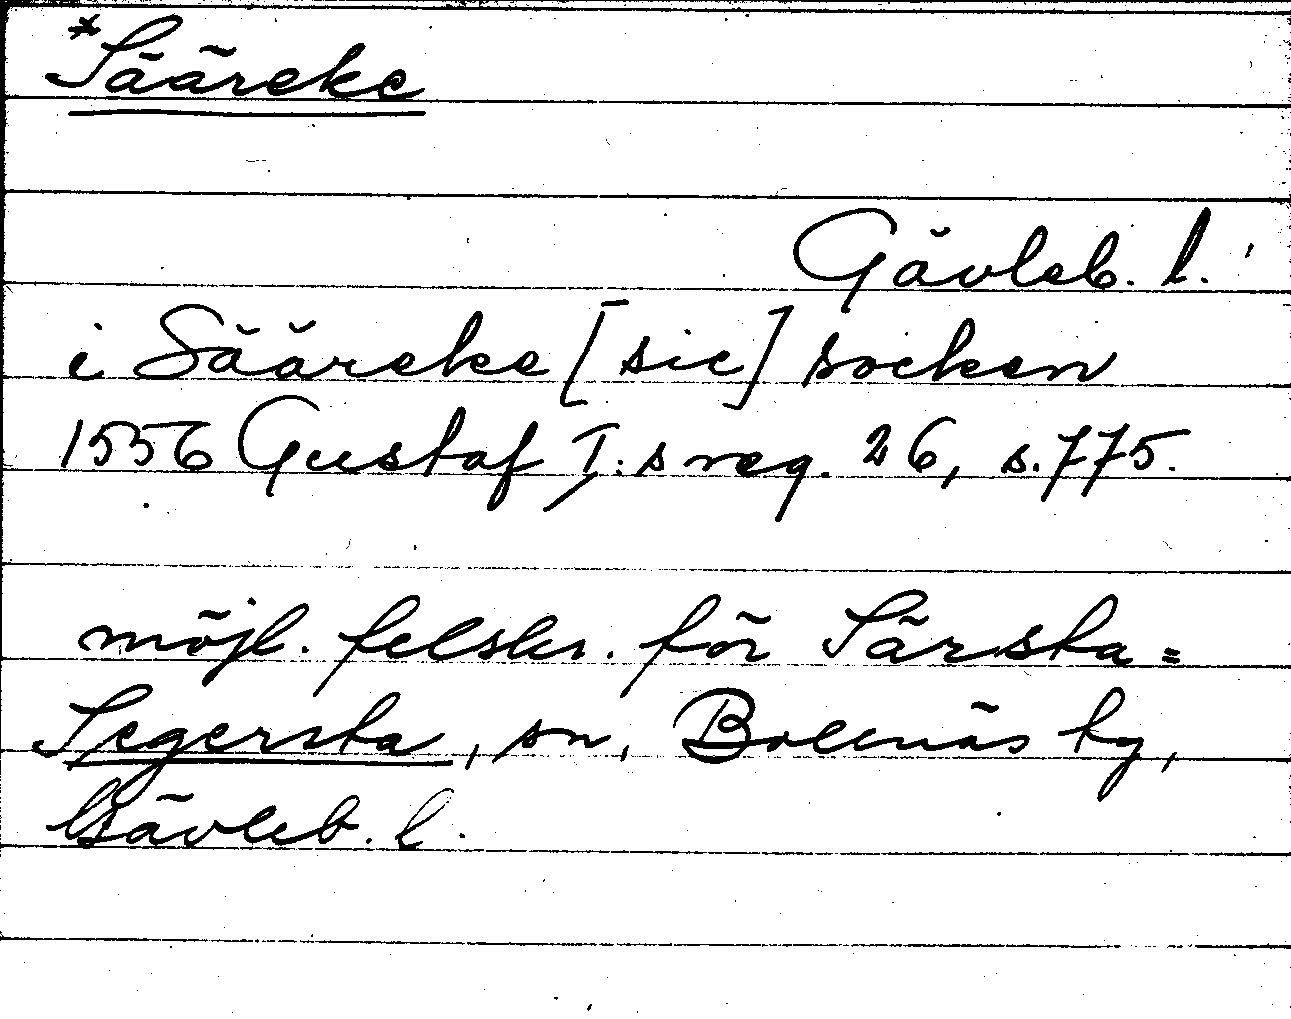 *Sääreke
Gävleb. l.
i Sääreke [sic] socken
1556 Gustaf I:s reg. 26, s. 775.
möjl. felskr. för Särsta =
Segersta, sn, Bollnäs tg,
Gävleb. l.